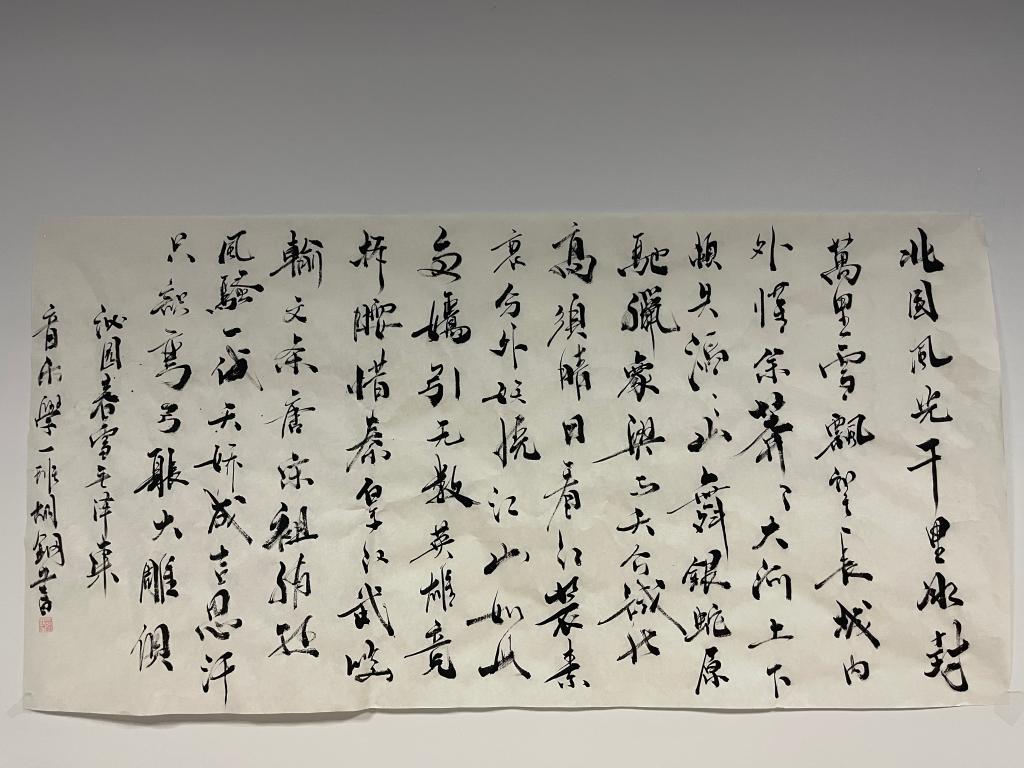 北国风光千里冰封
萬里雪飄望長城内
外惟余莽々大河上下
頓失滔々山舞銀蛇原
馳獵象欲与天公試比
高須晴日看红裝素
裹分外妖嬈江山如此
多嬌引无數英雄竞
折腰惜秦皇汉武略
輸文采唐宋祖稍逊
风騷一代天娇成吉思汗
只識弯弓射大雕俱
沁园春雪毛泽東
學一班胡鋼書